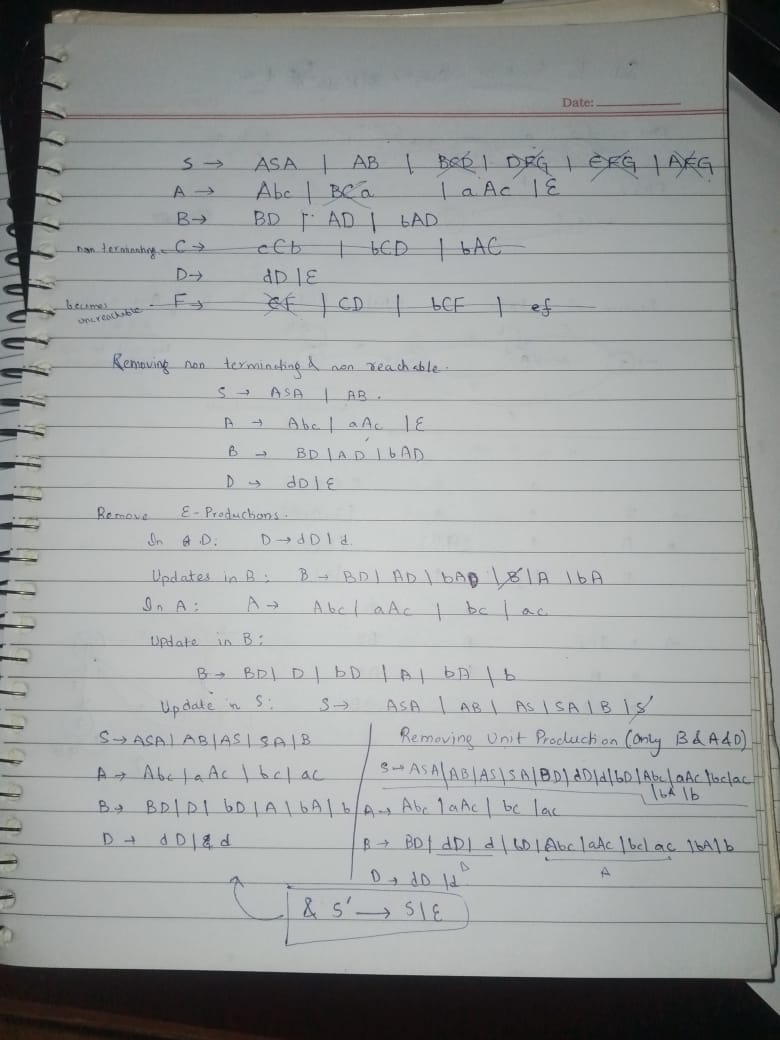 Date:
S → ASA | AB | BCD | DFG | EFG | AFG
A → Abc | BCa | aAc | ε
B → BD | AD | bAD
non terminating - C → cCb | bCD | bAC
D → dD | ε
becomes unreachable - F → eF | CD | bCF | ef
Removing non terminating & non reachable.
S → ASA | AB.
A → Abc | aAc | ε
B → BD | AD | bAD
D → dD | ε
Remove ε-Productions.
In D: D → dD | d.
Updates in B: B → BD | AD | bAD | B | A | bA
In A: A → Abc | aAc | bc | ac
Update in B:
B → BD | D | bD | A | bA | b
Update in S: S → ASA | AB | AS | SA | B | S
S → ASA | AB | AS | SA | B
A → Abc | aAc | bc | ac
B → BD | D | bD | A | bA | b
D → dD | d
Removing Unit Production (only B & A & D)
S → ASA | AB | AS | SA | BD | dD | d | bD | Abc | aAc | bc | ac
| bA | b
A → Abc | aAc | bc | ac
B → BD | dD | d | bD | Abc | aAc | bc | ac | bA | b
D A
D → dD | d
& S' → S | ε